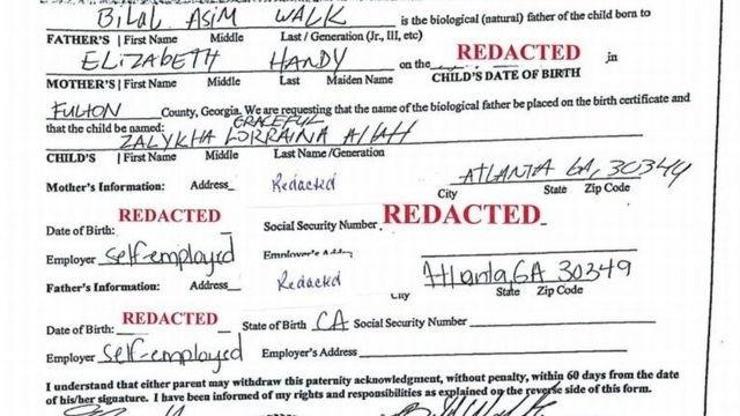 BILAL ASIM WALK is the biological (natural) father of the child born to
FATHER'S | First Name Middle Last / Generation (Jr., III, etc)
ELIZABETH HANDY on the REDACTED in
MOTHER'S | First Name Middle Last Maiden Name CHILD'S DATE OF BIRTH
FULTON County, Georgia. We are requesting that the name of the biological father be placed on the birth certificate and
that the child be named: GRACEFUL
ZALYKHA LORRAINA ALLAH
CHILD'S | First Name Middle Last Name /Generation
Mother's Information: Address Redacted ATLANTA GA, 30349
City State Zip Code
Date of Birth: REDACTED Social Security Number REDACTED
Employer self-employed Employer's Address
Father's Information: Address Redacted Atlanta, GA 30349
City State Zip Code
Date of Birth: REDACTED State of Birth CA Social Security Number
Employer self-employed Employer's Address
I understand that either parent may withdraw this paternity acknowledgment, without penalty, within 60 days from the date
of his/her signature. I have been informed of my rights and responsibilities as explained on the reverse side of this form.